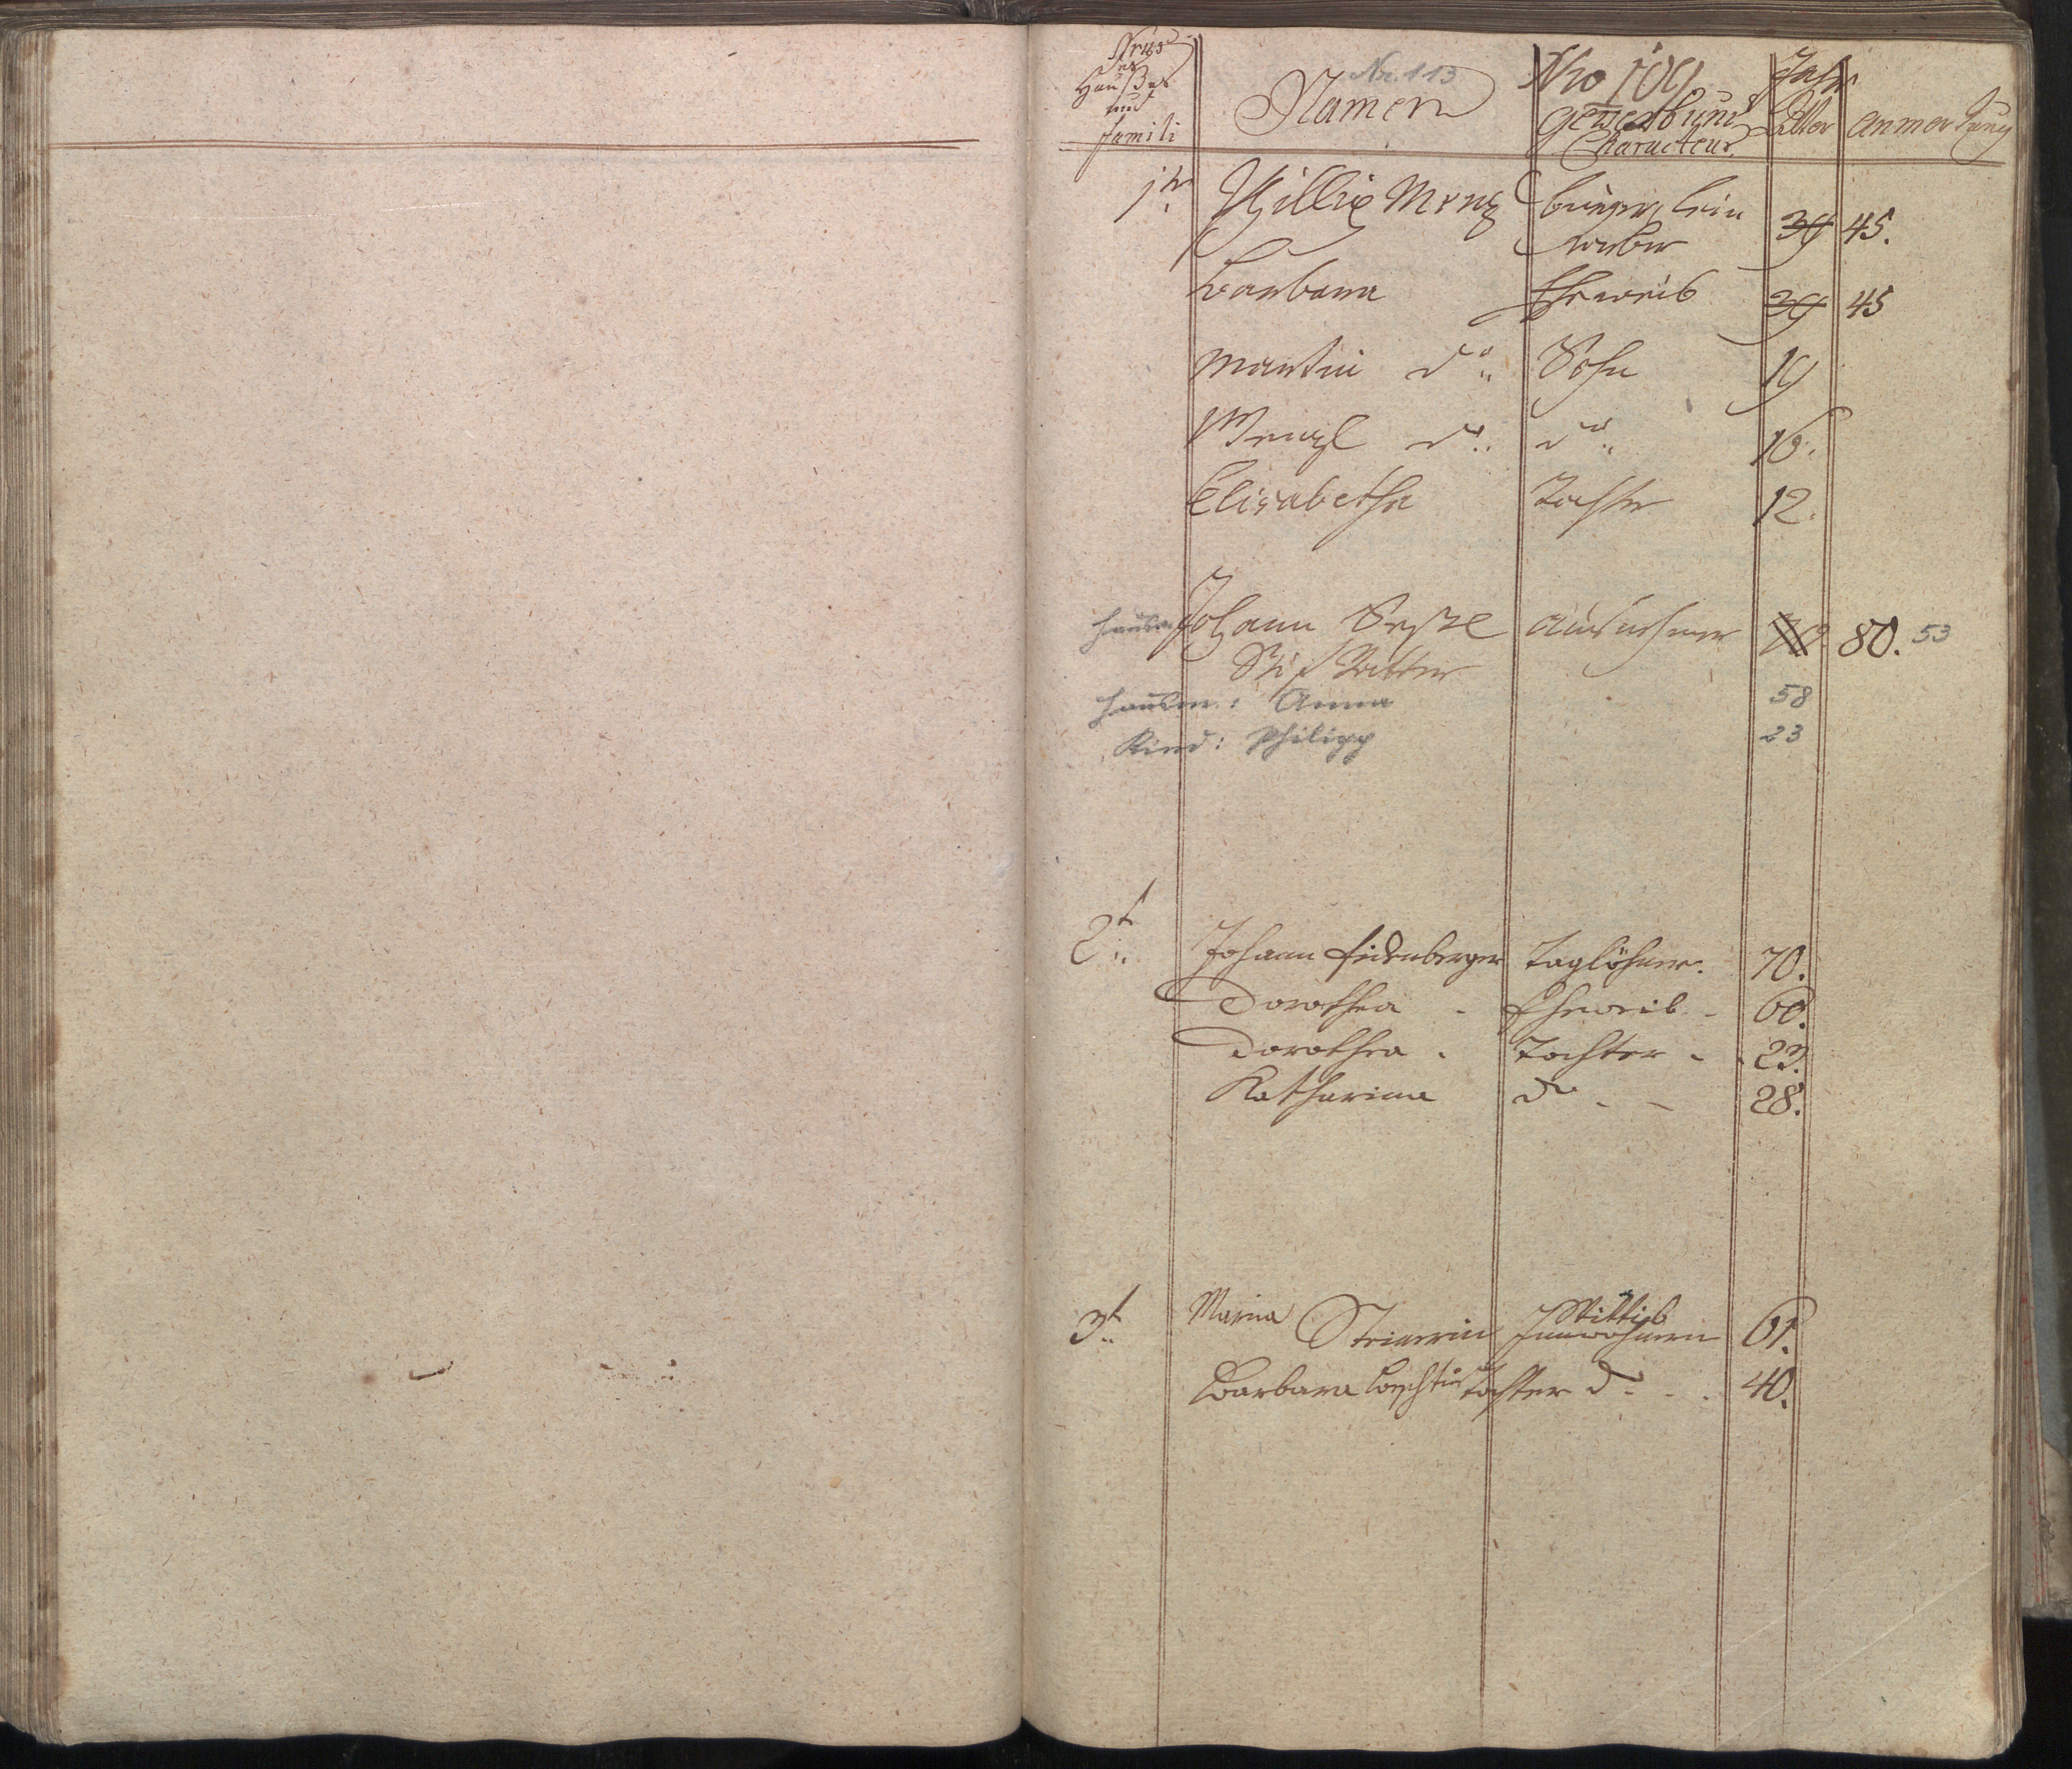 Nrus
des
Haußes
und
Famili
Nr. 113
Namen
Nro 109
Gewerb und
Characteur.
Jahr
Alter
Anmerkung
1te Killian Menz burger Lein
weber 39 45.
Barbara Eheweib 39 45
Martin do Sohn 19
Wenzl do do 16.
Elisabetha Tochter 12.
Hausm. Johann Ausnehmer 80. 53
Stif Vatter
Hausm.: Anna 58
Kind: Philipp 23
2t Johann Eidenberger Taglöhner. 70.
Dorothea - Eheweib - 60.
Dorothea - Tochter - 23.
Katharina do - - 28.
3t Maria Steinerin Wittib
Innwohnerin 61.
Barbara Tochter do - - 40.